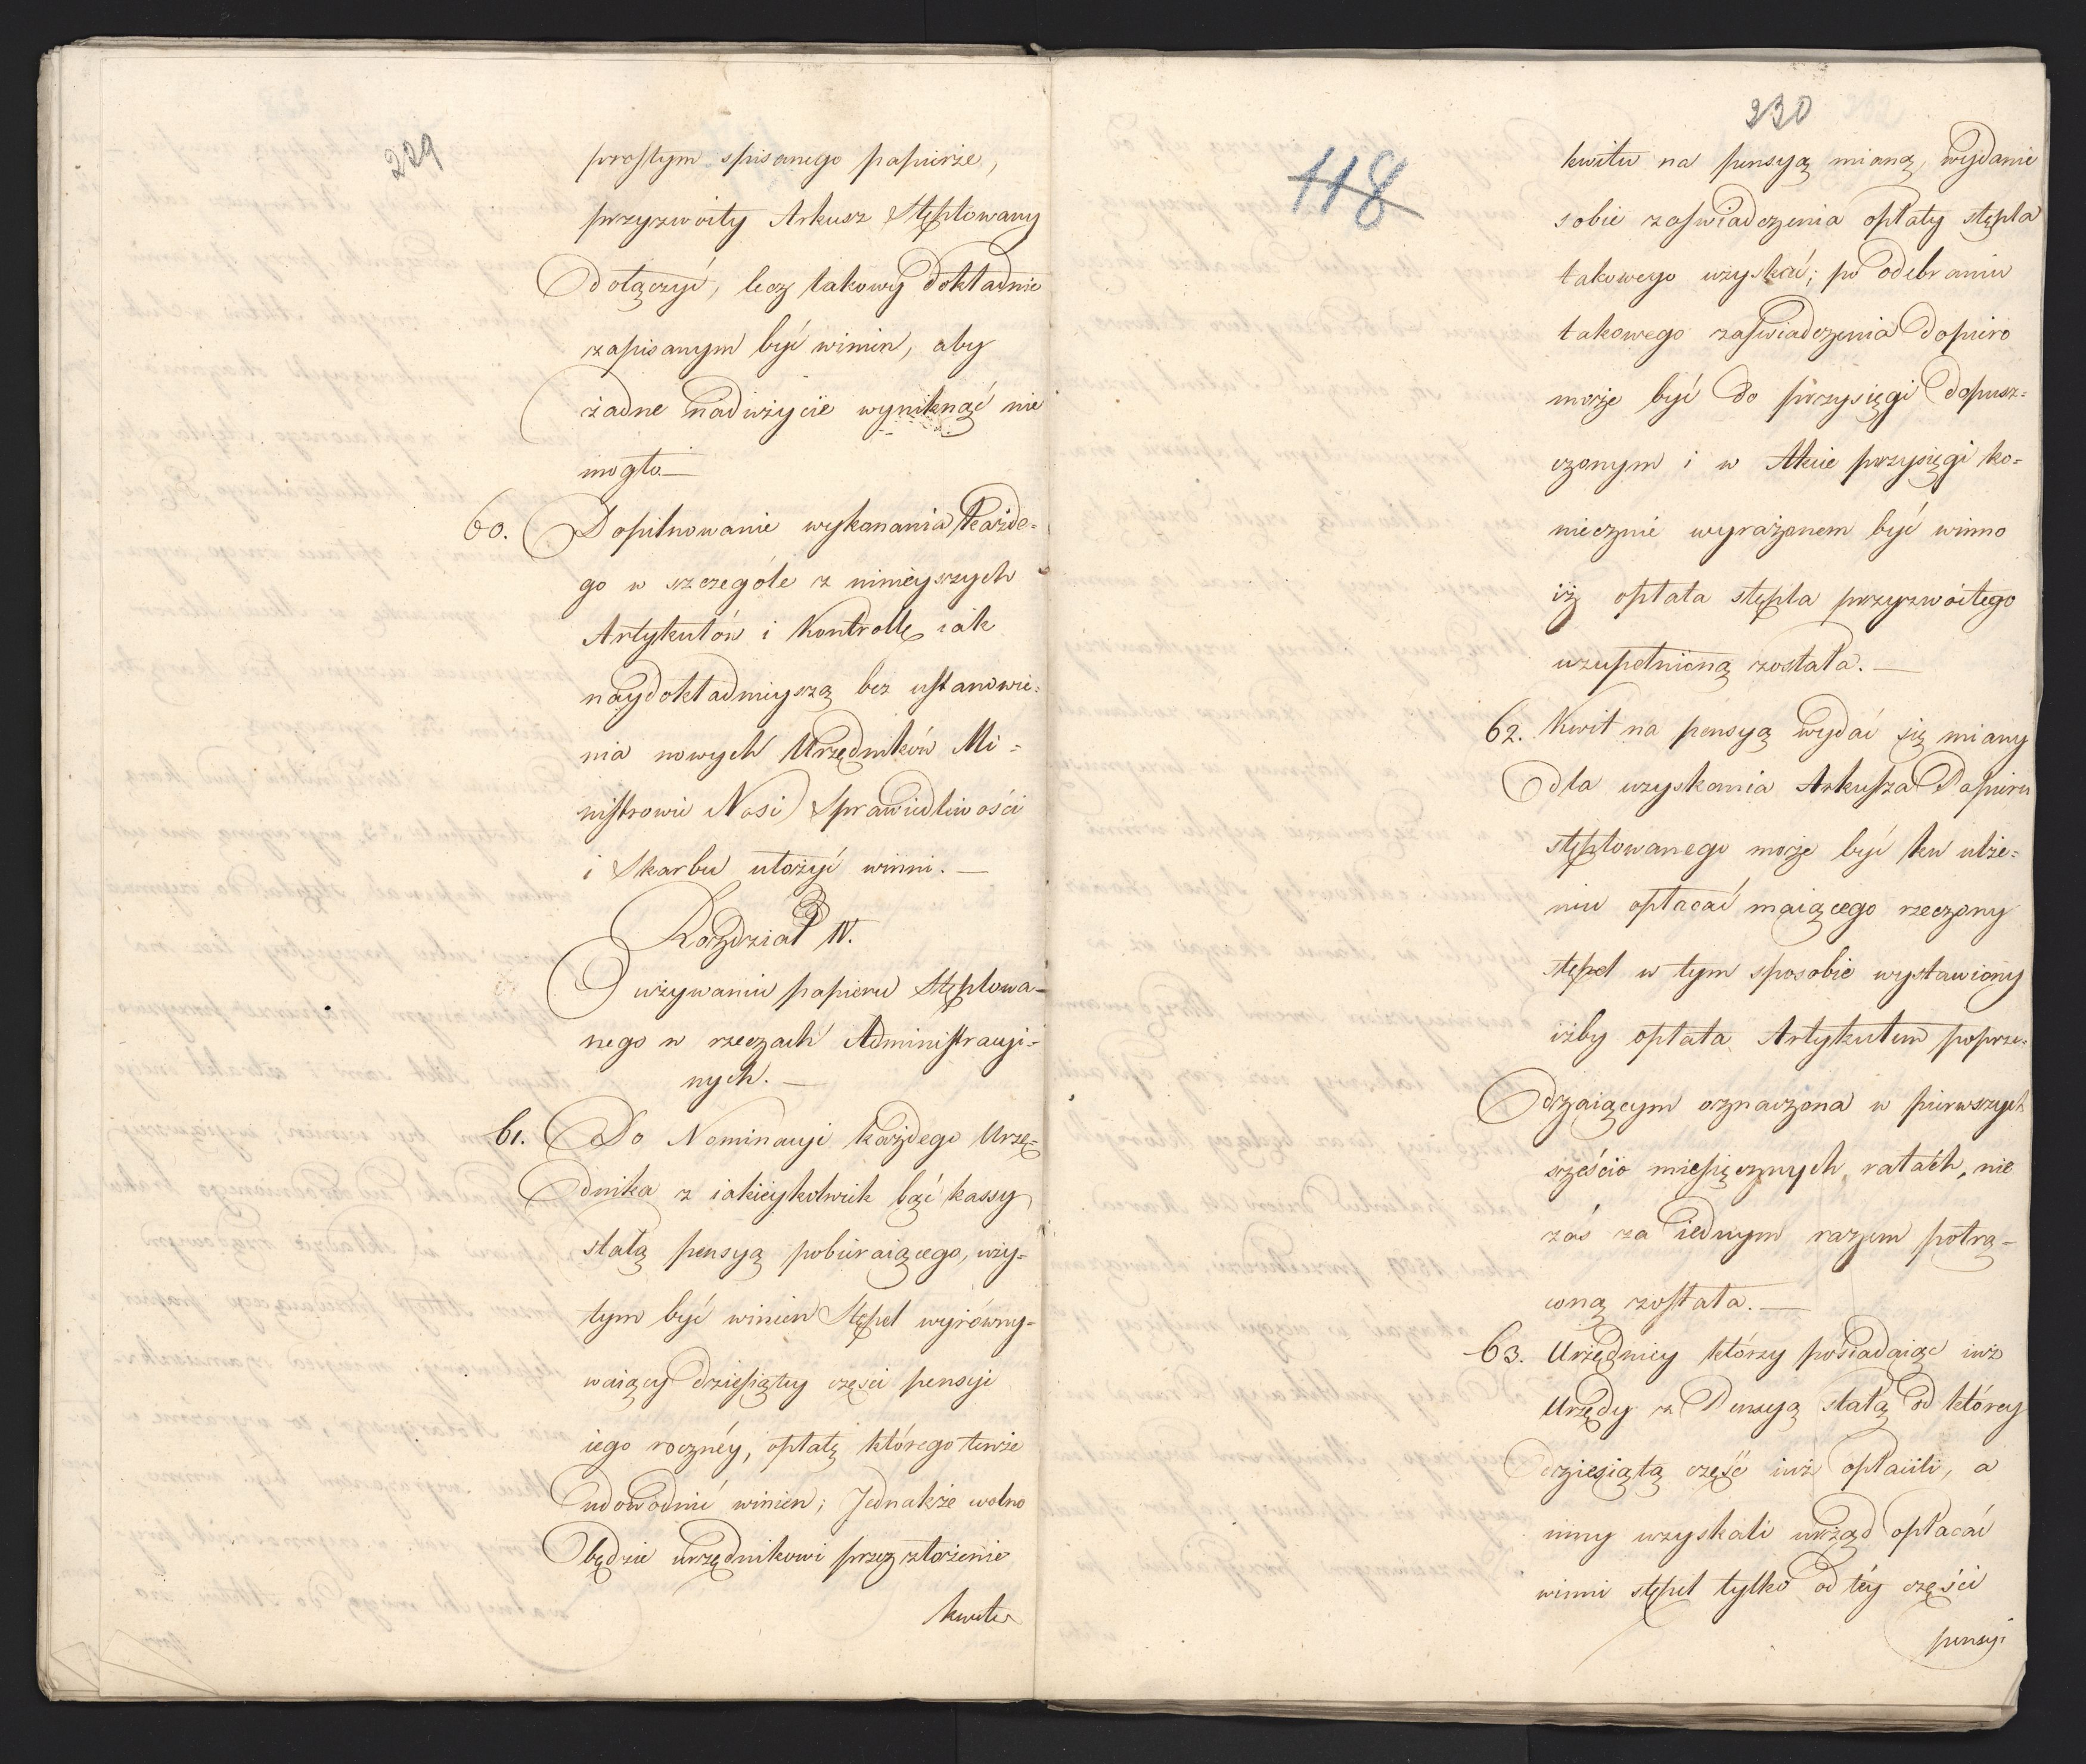 229
prostym spisanego papierże,
przyzwoity Arkusz Stęplowany
dołączyć, lecz takowy dokładnie
zapisanym być winien, aby
żadne nadużycie wyniknąć nie
mogło. —
60. Dopilnowanie wykonania każde-
go w szczególe z ninieyszych
Artykułów i kontrollę iak
naydokładnieyszą bez ustanowie-
nia nowych Urzędników Mi-
nistrowie Nasi Sprawiedliwości
i Skarbu ułożyć winni. —
Rozdział IV.
O używaniu papieru Stęplowa-
nego w rzeczach Administracyi-
nych. —
61. Do Nominacyi każdego Urzę-
dnika z iakieykolwiek bąć kassy
stałą pensyą pobieraiącego, uży-
tym być winien Stępel wyrówny-
waiący dziesiątey części pensyi
iego rocznéy, opłatę którego tenże
udowodnić winien; Jednakże wolno
będzie urzędnikowi przez złożenie
kwitu
230
118
kwitu na pensyą mianą, wydanie
sobie zaświadczenia opłaty stępla
takowego uzyskać; po odebraniu
takowego zaświadczenia dopiero
może być do przysięgi dopusz-
czonym i w Akcie przysięgi ko-
niecznie wyrażonem być winno
iż opłata stępla przyzwoitego
uzupełnioną została. —
62. Kwit na pensyą wydać się miany
dla uzyskania Arkusza Papieru
stęplowanego może być ku ulże-
niu opłacać maiącego rzeczony
stępel w tym sposobie wystawiony
iżby opłata Artykułem poprze-
dzaiącym oznaczona w pierwszych
sześcio miesięcznych ratach, nie
zaś za iednym razem potrą-
coną została. —
63. Urzędnicy którzy posiadaiąc iuż
Urzędy z Pensyą stałą od którey
dziesiątą część iuż opłacili, a
inny uzyskali urząd opłacać
winni stępel tylko od téy części
pensyi